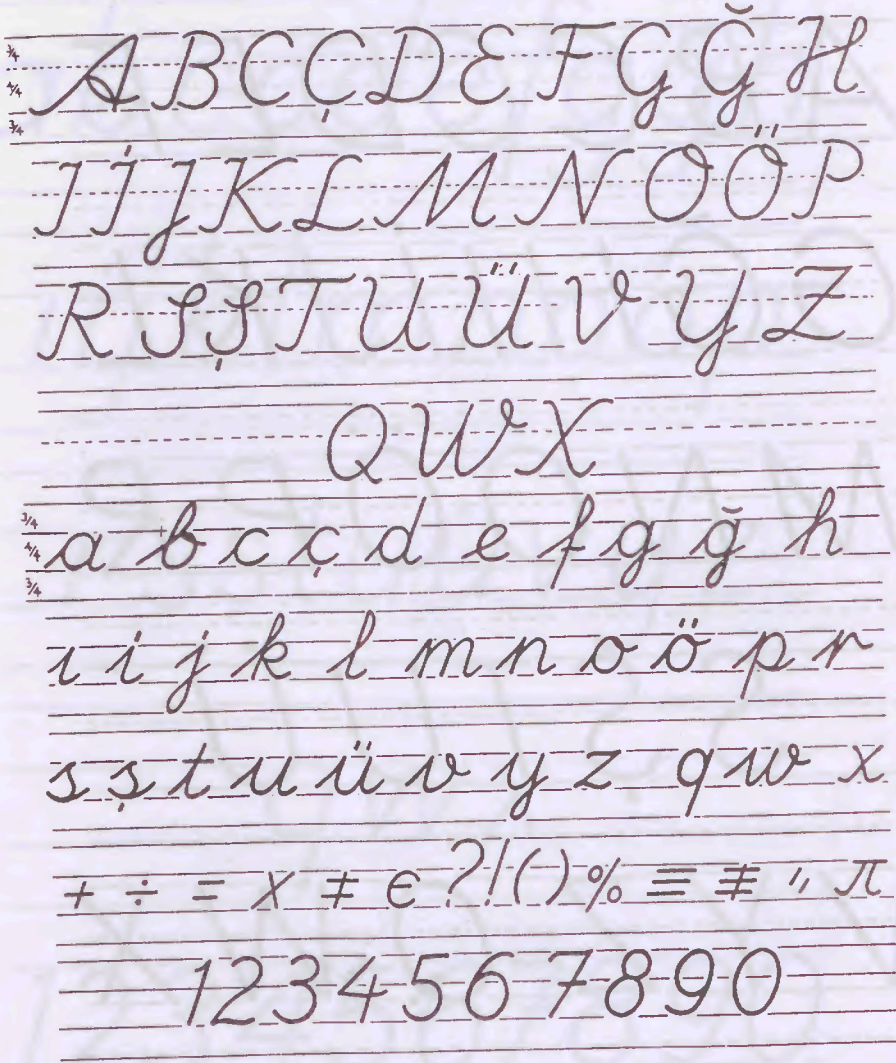 3/4 4/4 3/4 A B C Ç D E F G Ğ H
I İ J K L M N O Ö P
R S Ş T U Ü V Y Z
Q W X
3/4 4/4 3/4 a b c ç d e f g ğ h
ı i j k l m n o ö p r
s ş t u ü v y z q w x
+ ÷ = x ≠ € ? ! ( ) % ≡ ≢ " „ π
1 2 3 4 5 6 7 8 9 0